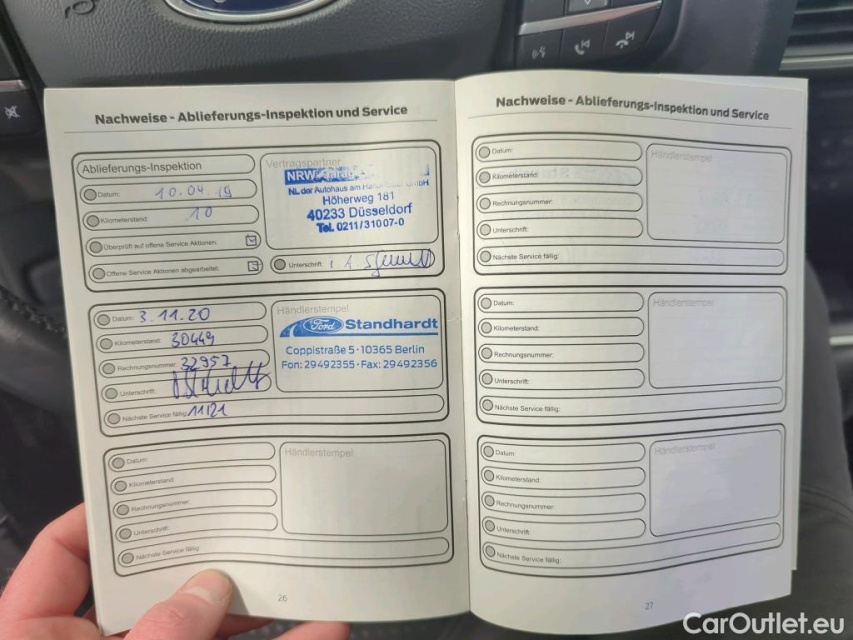 Nachweise - Ablieferungs-Inspektion und Service
Ablieferungs-Inspektion
Datum: 10.04.19
Kilometerstand: 10
Überprüft auf offene Service-Aktionen:
Offene Service Aktionen abgearbeitet:
Vertragspartner
NRW
NL der Autohaus am GmbH
Höherweg 181
40233 Düsseldorf
Tel. 0211/31007-0
Unterschrift:
Datum: 3.11.20
Kilometerstand: 30449
Rechnungsnummer: 32957
Unterschrift:
Nächste Service fällig: 11/21
Händlerstempel
Ford Standhardt
Coppistraße 5 · 10365 Berlin
Fon: 29492355 · Fax: 29492356
Datum:
Kilometerstand:
Rechnungsnummer:
Unterschrift:
Nächste Service fällig:
Händlerstempel
26
Nachweise - Ablieferungs-Inspektion und Service
Datum:
Kilometerstand:
Rechnungsnummer:
Unterschrift:
Nächste Service fällig:
Händlerstempel
Datum:
Kilometerstand:
Rechnungsnummer:
Unterschrift:
Nächste Service fällig:
Händlerstempel
Datum:
Kilometerstand:
Rechnungsnummer:
Unterschrift:
Nächste Service fällig:
Händlerstempel
27
CarOutlet.eu